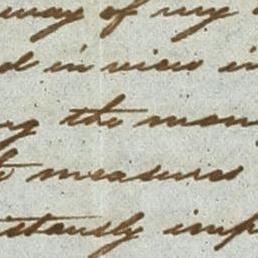 way of my
d in view in
g the man
measures
stously imp